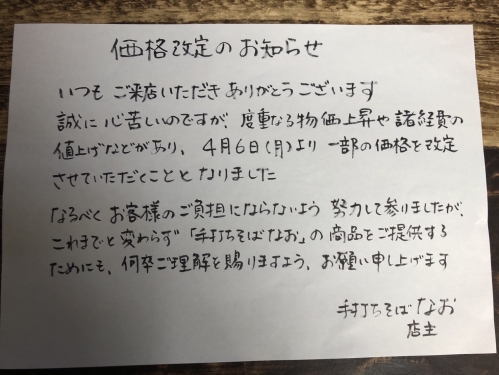 価格改定のお知らせ
いつも ご来店いただき ありがとうございます
誠に 心苦しいのですが、度重なる物価上昇や 諸経費の
値上げなどがあり、4月6日(月)より 一部の価格を改定
させていただくことと なりました
なるべく お客様のご負担にならないよう 努力して参りましたが、
これまでと変わらず「手打ちそばなお」の商品をご提供する
ためにも、何卒ご理解を賜りますよう、お願い申し上げます
手打ちそば なお
店主